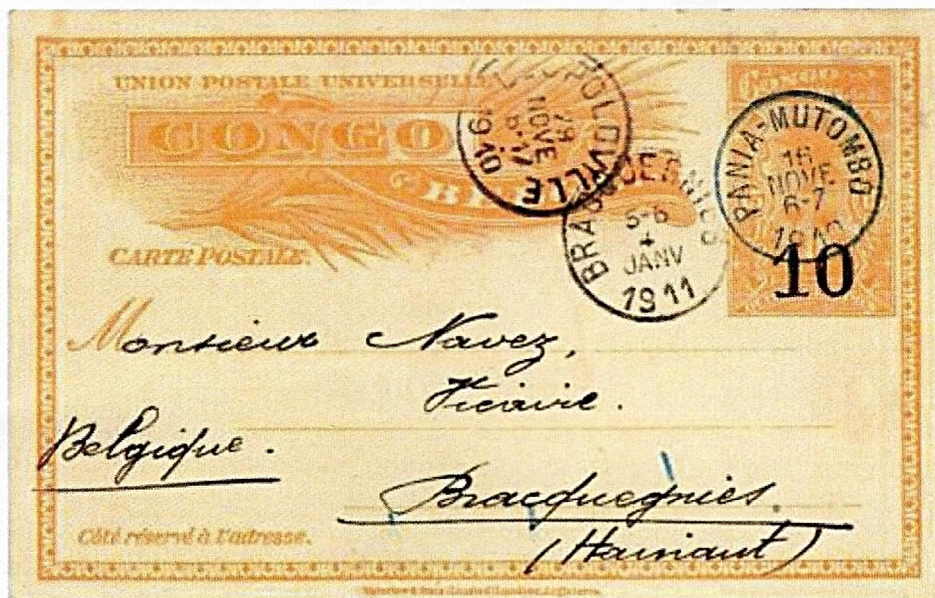 UNION POSTALE UNIVERSELLE
CONGO
CONGO
BELGE
CARTE POSTALE.
OPOLDVILLE
28
NOVE
6-17
1910
BRACQUEGNIES
5-6
4
JANV
1911
PANIA-MUTOMBO
16
NOVE
6-7
1910
10
Monsieur Navez,
Vicaire.
Belgique.
Bracquegnies.
(Hainaut)
Côté réservé à l'adresse.